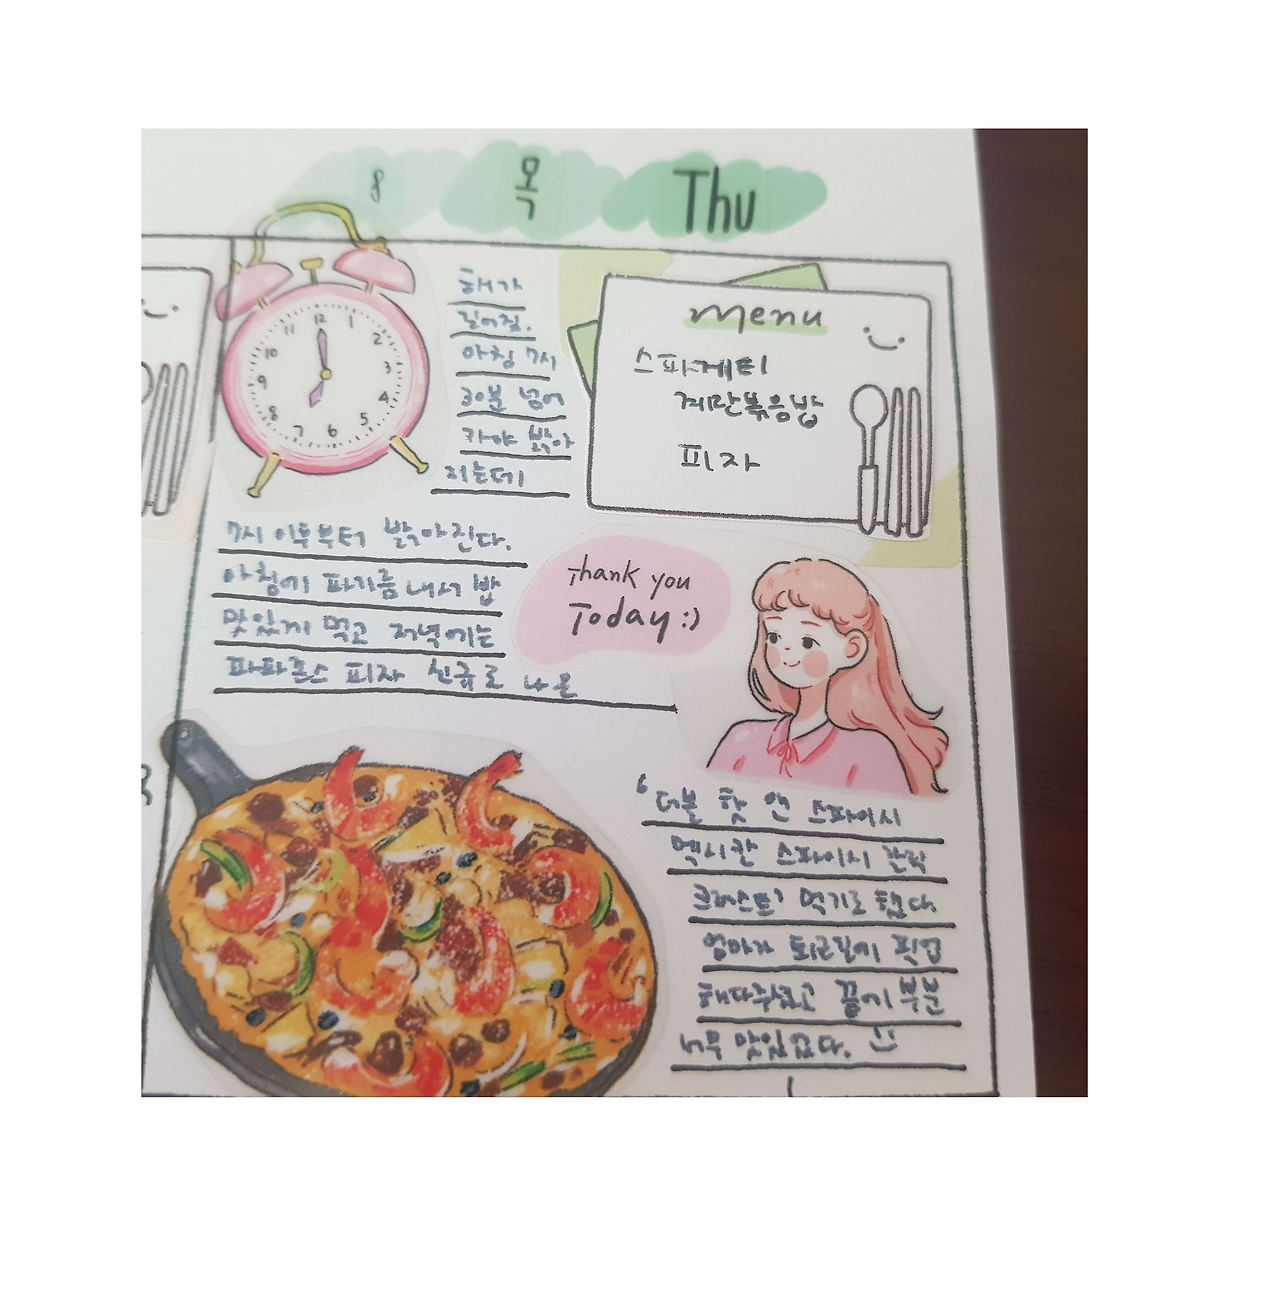 8 목 Thu
해가
길어짐.
아침 7시
30분 넘어
가야 밝아
지는데
7시 이후부터 밝아진다.
아침에 파기름 내서 밥
맛있게 먹고 저녁에는
파파존스 피자 신규로 나온
menu
스파게티
계란볶음밥
피자
Thank you
Today :)
'더블 핫 앤 스파이시
멕시칸 스파이시 갈릭
크러스트' 먹기로 했다
엄마가 퇴근길에 픽업
해다주셨고 끝에 부분
너무 맛있었다.
12
1
2
3
4
5
6
7
8
9
10
11